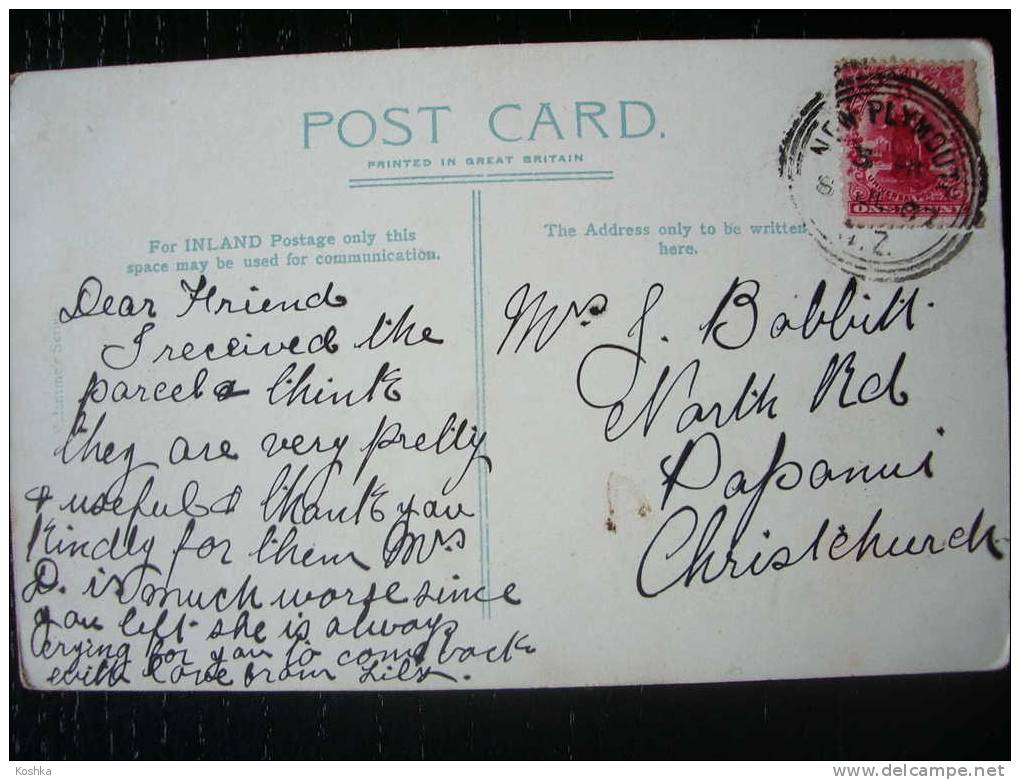 POST CARD.
PRINTED IN GREAT BRITAIN
For INLAND Postage only this
space may be used for communication.
The Address only to be written
here.
NEW PLYMOUTH
N.Z.
Dear Friend
I received the
parcel & think
they are very pretty
& useful & thank you
kindly for them Mrs
D. is much worse since
you left she is always
crying for you to come back
with love from Lily.
Mrs J. Babbitt.
North Rd
Papanui
Christchurch
Koshka
delcampe.net